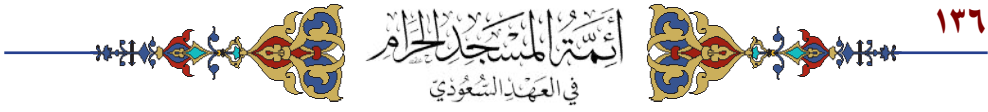 ١٣٦
أَئِمَّةُ المَسْجِدِ الحَرَامِ
فِي العَهْدِ السُّعُودِيّ